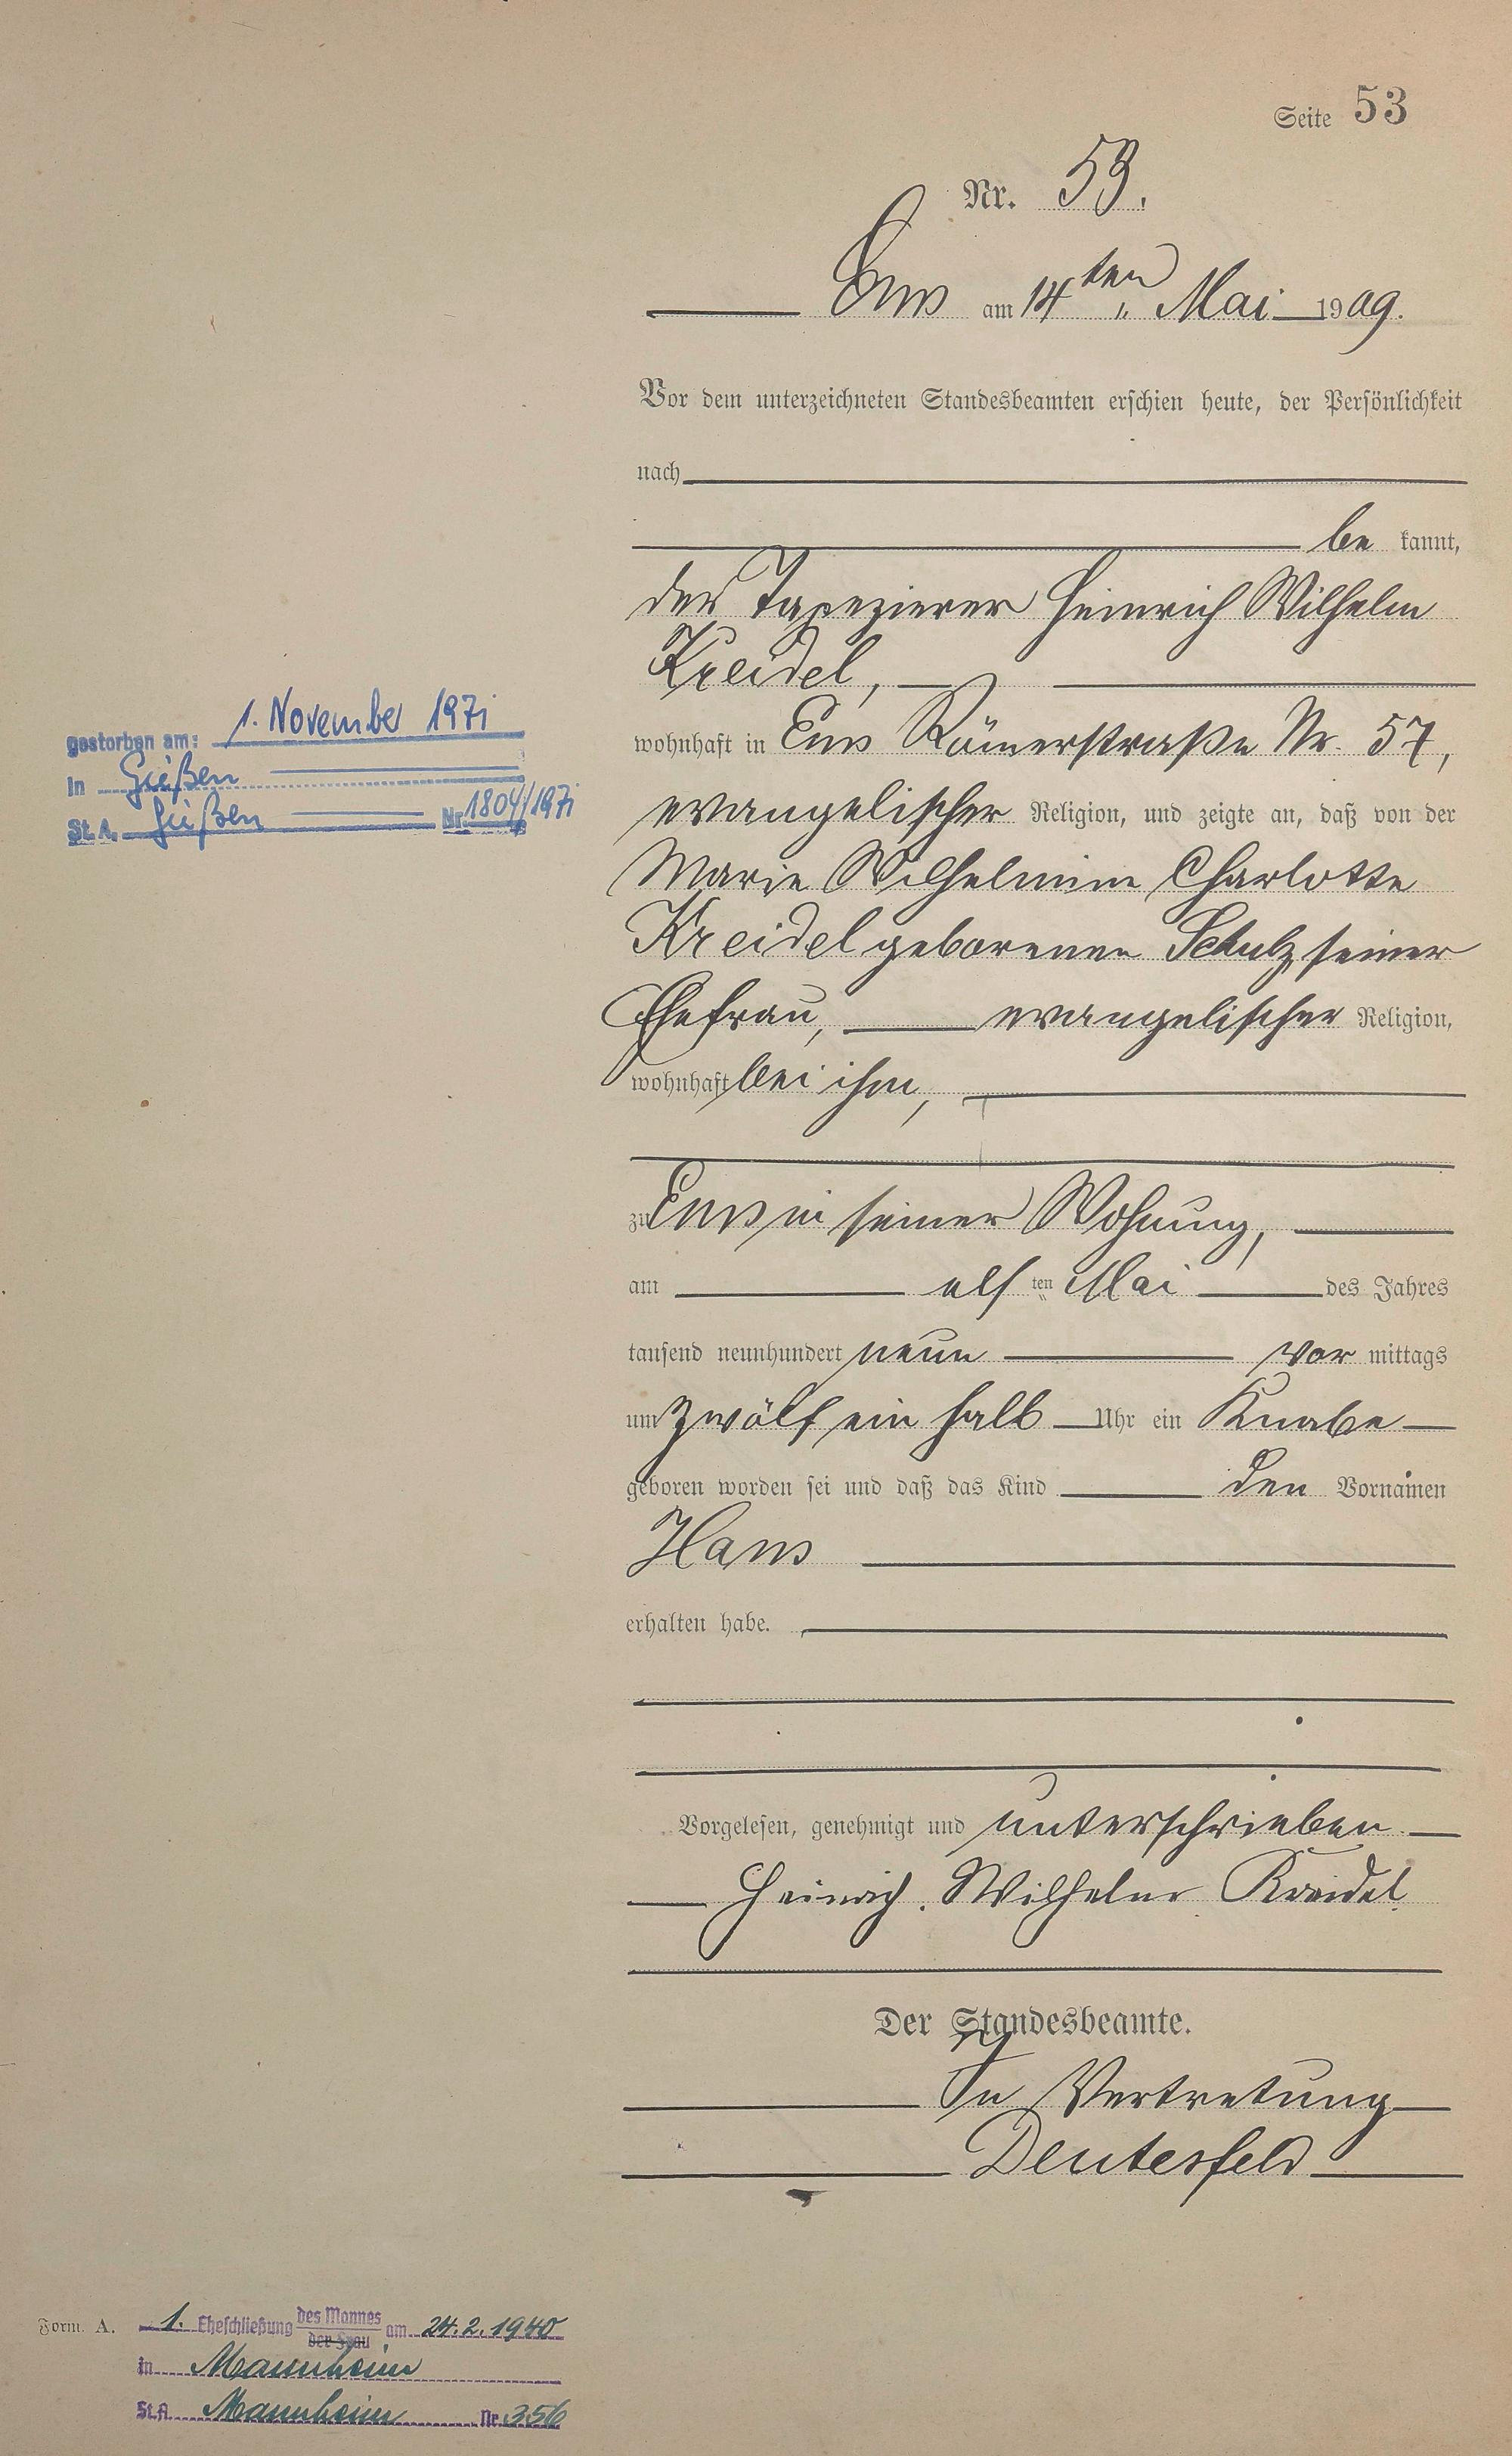 Seite 53
Nr. 53.
Ems am 14ten Mai 1909.
Vor dem unterzeichneten Standesbeamten erschien heute, der Persönlichkeit
nach
be kannt,
der Tapezierer Heinrich Wilhelm
Kreidel,
wohnhaft in Ems Römerstraße Nr. 57,
evangelischer Religion, und zeigte an, daß von der
Marie Wilhelmine Charlotte
Kreidel geborenen Schulz seiner
Ehefrau, evangelischer Religion,
wohnhaft bei ihm,
zu Ems in seiner Wohnung,
am elf ten Mai des Jahres
tausend neunhundert neun vor mittags
um zwölf ein halb Uhr ein Knabe
geboren worden sei und daß das Kind den Vornamen
Hans
erhalten habe.
Vorgelesen, genehmigt und unterschrieben
Heinrich Wilhelm Kreidel
Der Standesbeamte.
In Vertretung
Deutesfeld
gestorben am: 1. November 1971
in Gießen
St. A. Gießen Nr. 1804/1971
Form. A. 1. Eheschließung des Mannes der Frau am 24.2.1940
in Mannheim
St.A. Mannheim Nr. 356